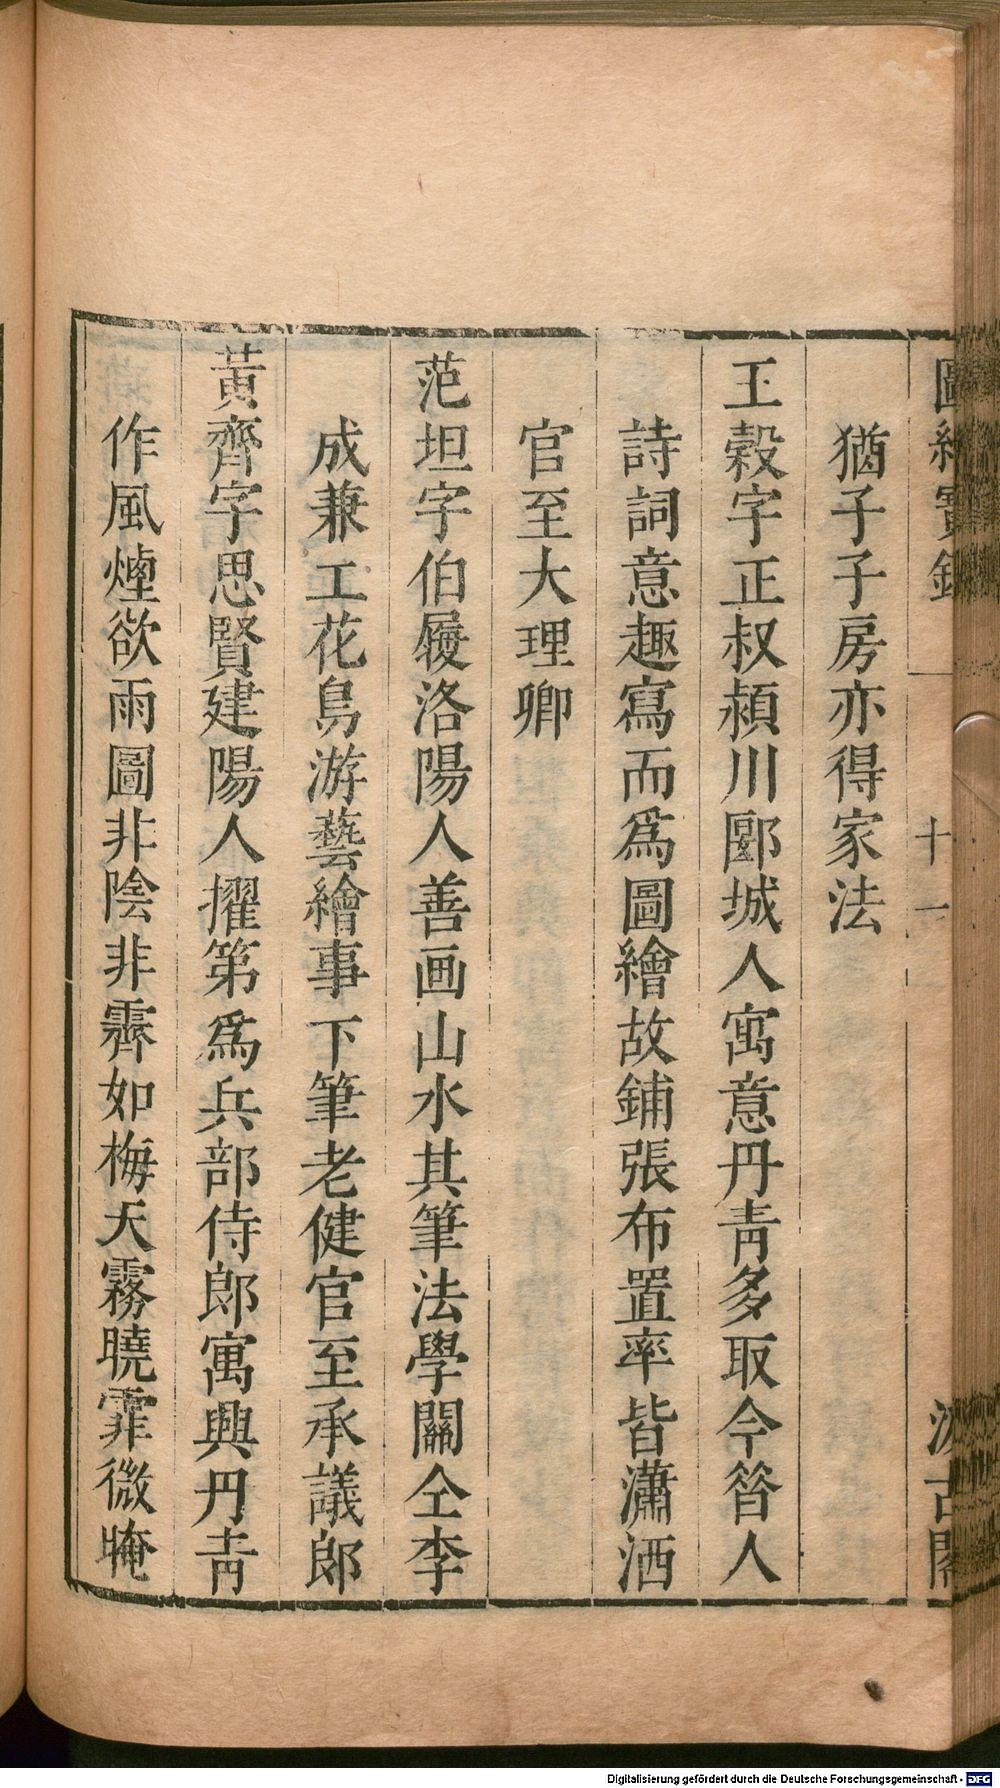 圖繪寶鑑
十一
汲古閣
猶子子房亦得家法
王穀字正叔潁川郾城人寓意丹靑多取今昝人
詩詞意趣寫而爲圖繪故鋪張布置率皆瀟洒
官至大理卿
范坦字伯履洛陽人善画山水其筆法學關仝李
成兼工花鳥游藝繪事下筆老健官至承議郎
黃齊字思賢建陽人擢第爲兵部侍郎寓興丹靑
作風煙欲雨圖非陰非霽如梅天霧曉霏微晻
Digitalisierung gefördert durch die Deutsche Forschungsgemeinschaft - DFG